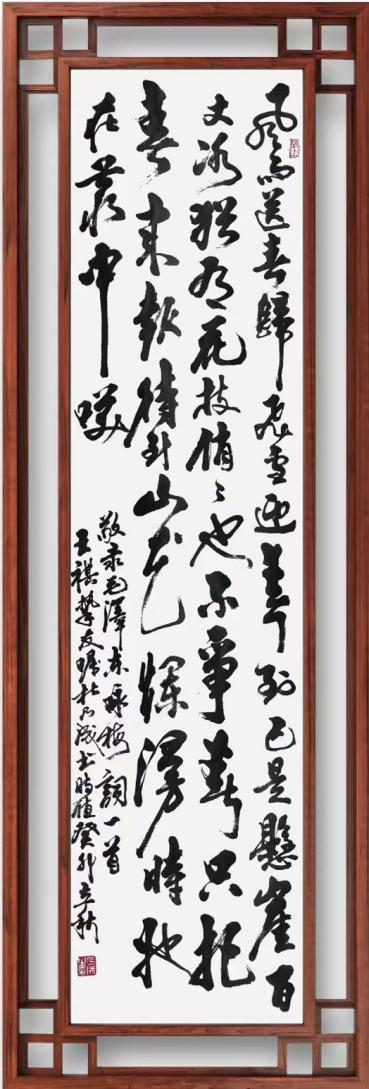 風雨送春歸飛雪迎春到已是懸崖百
丈冰猶有花枝俏々也不爭春只把
春来報待到山花爛漫時她
在叢中咲
敬录毛澤東咏梅詞一首
王祺摯友嘱書時值癸卯立秋